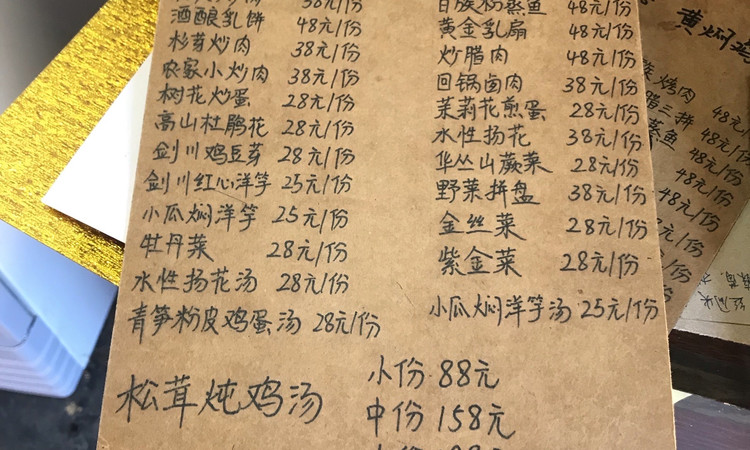 38元/份
酒酿乳饼 48元/份
杉芽炒肉 38元/份
农家小炒肉 38元/份
树花炒蛋 28元/份
高山杜鹃花 28元/份
剑川鸡豆芽 28元/份
剑川红心洋芋 25元/份
小瓜焖洋芋 25元/份
牡丹菜 28元/份
水性扬花汤 28元/份
青笋粉皮鸡蛋汤 28元/份
白族粉蒸鱼 48元/份
黄金乳扇 48元/份
炒腊肉 48元/份
回锅卤肉 38元/份
茉莉花煎蛋 28元/份
水性扬花 38元/份
华丛山蕨菜 28元/份
野菜拼盘 38元/份
金丝菜 28元/份
紫金菜 28元/份
小瓜焖洋芋汤 25元/份
松茸炖鸡汤
小份 88元
中份 158元
黄焖鸡
族烤肉 48元/
腊三拼 48元/份
蒸鱼 48元/份
48元/份
48元/份